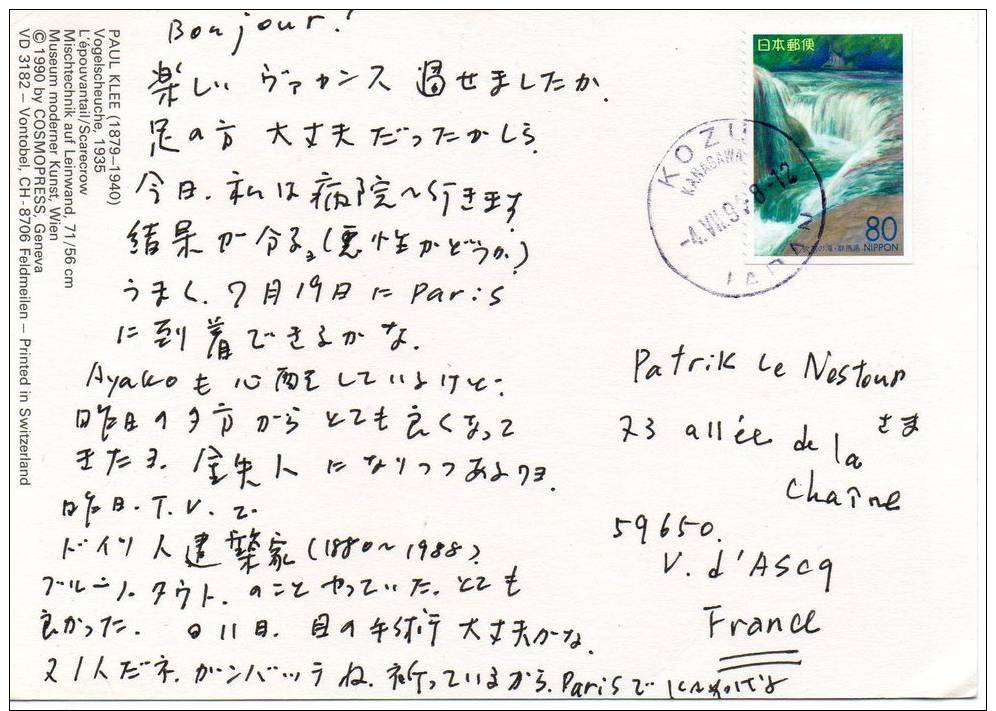 Bonjour!
楽しい ヴァカンス 過せましたか.
足の方 大丈夫だったかしら
今日. 私は病院へ行きます
結果が分る。(悪性かどうか?)
うまく. 7月19日に Paris
に到着できるかな.
Ayakoも心配しているけど.
昨日の夕方からとても良くなって
きたヨ. 鉄人になりつつあるヨ.
昨日. T.V. で
ドイツ人建築家 (1880~1988)
ブルーノ. タウト. のことやっていた. とても
良かった. 11日. 目の手術 大丈夫かな.
又1人だネ. ガンバッテね. 祈っているから. Parisで
PAUL KLEE (1879–1940)
Vogelscheuche, 1935
L'épouvantail/Scarecrow
Mischtechnik auf Leinwand, 71/56 cm
Museum moderner Kunst, Wien
© 1990 by COSMOPRESS, Geneva
VD 3182 – Vontobel, CH-8706 Feldmeilen – Printed in Switzerland
日本郵便
80
NIPPON
KOZU
KANAGAWA
-4.VII.9 8-12
JAPAN
Patrik Le Nestour
さま
73 allée de la
Chaîne
59650.
V. d'Ascq
France